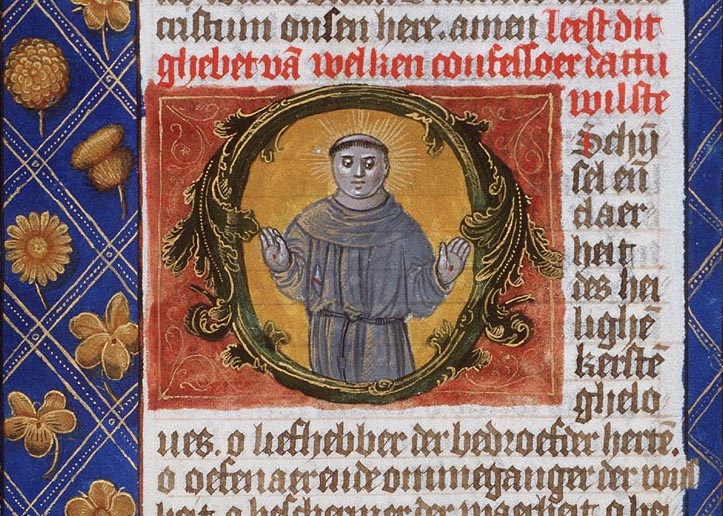 cristum onsen here. amen Leest dit
ghebet vā welken confessoer dattu
wilste
O Schÿ
sel eñ
claer
heit
des hei
lighē
kerstē
ghelo
ues. o liefhebber der bedroefder hertē.
o oefenaer ende ommeganger der wijs
heit. o beschermer der waerheit. o hei